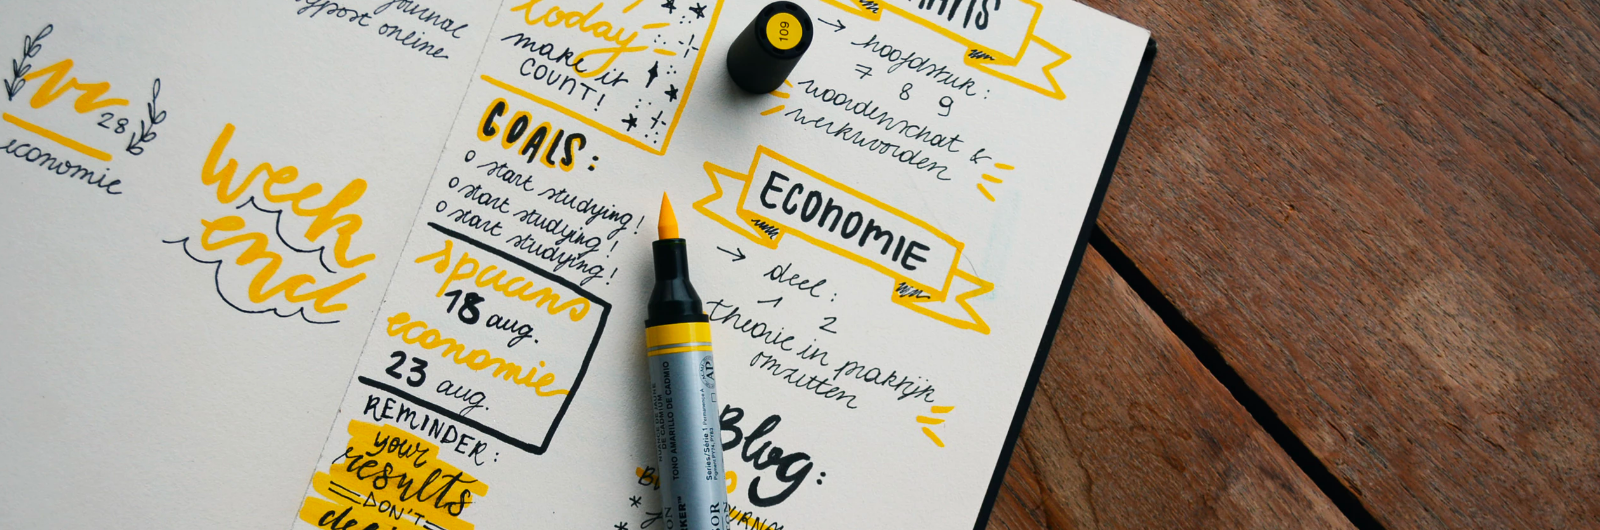 journal
post online
vr 28
economie
week
end
today
make it
COUNT!
GOALS:
o start studying!
o start studying!
o start studying!
spaans
18 aug.
economie
23 aug.
REMINDER:
your
results
DON'T
109
→ hoofdstuk:
7 8 9
woordenschat &
werkwoorden
ECONOMIE
→ deel:
1 2
theorie in praktijk
omzetten
Blog:
TONO AMARILLO DE CADMIO
DE CADMIUM
Series/Série 1
AP